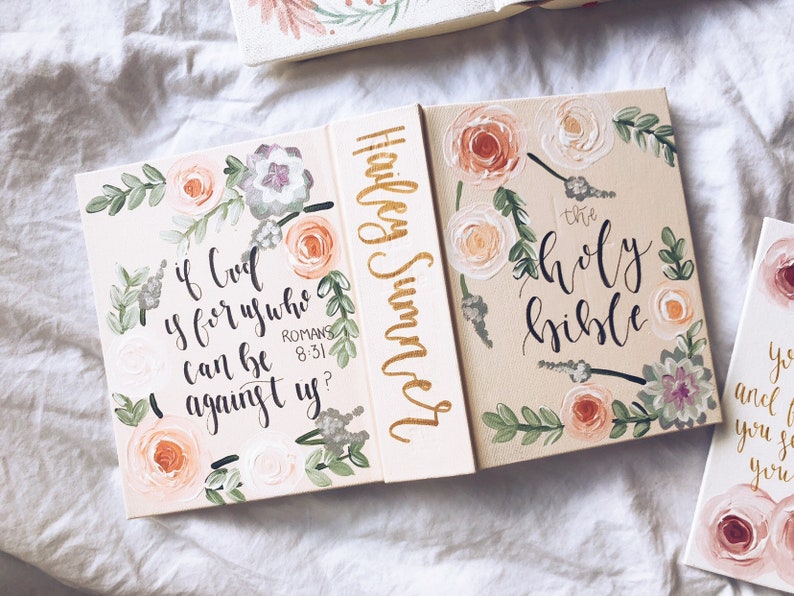 if God
is for us who
can be
against us?
ROMANS
8:31
Hailey Summer
the
holy
bible
yo
and f
you se
yo